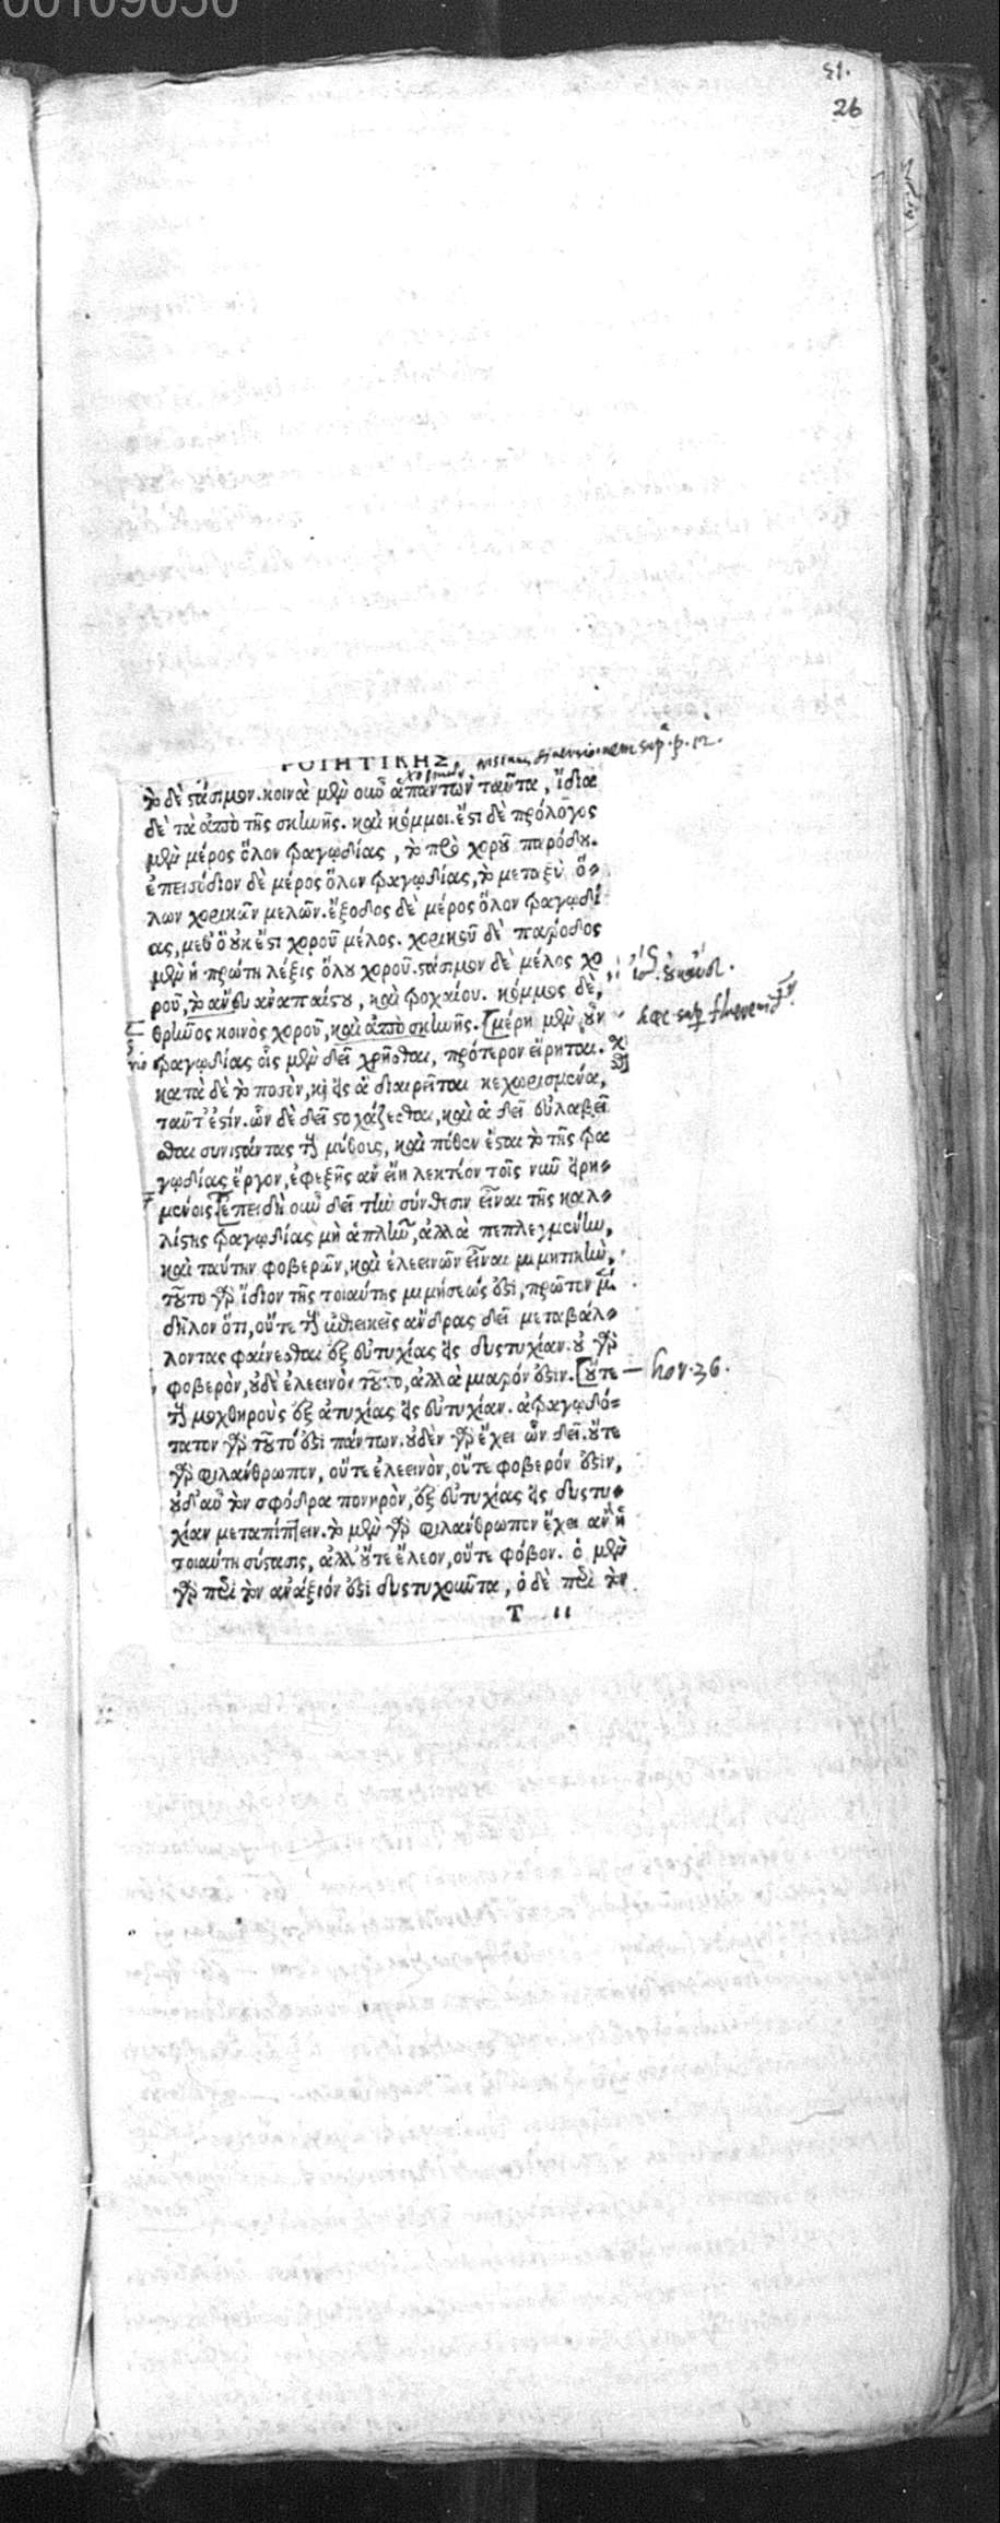 00109030
51.
26
ΠΟΙΗΤΙΚΗΣ,
sup. p. 12.
τὸ δὲ στάσιμον. κοινὰ μὲν οὖν ἁπάντων ταῦτα, ἴδια
δὲ τὰ ἀπὸ τῆς σκηνῆς. καὶ κόμμοι. ἔστι δὲ πρόλογος
μὲν μέρος ὅλον τραγῳδίας, τὸ πρὸ χοροῦ παρόδου.
ἐπεισόδιον δὲ μέρος ὅλον τραγῳδίας, τὸ μεταξὺ ὅ-
λων χορικῶν μελῶν. ἔξοδος δὲ μέρος ὅλον τραγῳδί
ας, μεθ' ὃ οὐκ ἔστι χοροῦ μέλος. χορικοῦ δὲ πάροδος
μὲν ἡ πρώτη λέξις ὅλου χοροῦ. στάσιμον δὲ μέλος χο
ροῦ, τὸ ἄνευ ἀναπαίστου, καὶ τροχαίου. κόμμος δὲ,
θρῆνος κοινὸς χοροῦ, καὶ ἀπὸ σκηνῆς. [μέρη μὲν οὖν
τραγῳδίας οἷς μὲν δεῖ χρῆσθαι, πρότερον εἴρηται.
κατὰ δὲ τὸ ποσὸν, καὶ εἰς ἃ διαιρεῖται κεχωρισμένα,
ταῦτ' ἐστίν. ὧν δὲ δεῖ στοχάζεσθαι, καὶ ἃ δεῖ εὐλαβεῖ
σθαι συνιστάντας τοὺς μύθους, καὶ πόθεν ἔσται τὸ τῆς τρα
γῳδίας ἔργον, ἐφεξῆς ἂν εἴη λεκτέον τοῖς νῦν εἰρη-
μένοις. [ἐπειδὴ οὖν δεῖ τὴν σύνθεσιν εἶναι τῆς καλ-
λίστης τραγῳδίας μὴ ἁπλῆν, ἀλλὰ πεπλεγμένην,
καὶ ταύτην φοβερῶν, καὶ ἐλεεινῶν εἶναι μιμητικὴν,
τοῦτο γὰρ ἴδιον τῆς τοιαύτης μιμήσεώς ἐστι, πρῶτον μὲν
δῆλον ὅτι, οὔτε τοὺς ἐπιεικεῖς ἄνδρας δεῖ μεταβάλ-
λοντας φαίνεσθαι ἐξ εὐτυχίας εἰς δυστυχίαν. οὐ γὰρ
φοβερὸν, οὐδὲ ἐλεεινὸν τοῦτο, ἀλλὰ μιαρόν ἐστιν. [οὔτε — hor. 36.
τοὺς μοχθηροὺς ἐξ ἀτυχίας εἰς εὐτυχίαν. ἀτραγῳδό-
τατον γὰρ τοῦτό ἐστι πάντων. οὐδὲν γὰρ ἔχει ὧν δεῖ. οὔτε
γὰρ φιλάνθρωπον, οὔτε ἐλεεινὸν, οὔτε φοβερόν ἐστιν,
οὐδ' αὖ τὸν σφόδρα πονηρὸν, ἐξ εὐτυχίας εἰς δυστυ-
χίαν μεταπίπτειν. τὸ μὲν γὰρ φιλάνθρωπον ἔχει ἂν ἡ
τοιαύτη σύστασις, ἀλλ' οὔτε ἔλεον, οὔτε φόβον. ὁ μὲν
γὰρ περὶ τὸν ἀνάξιόν ἐστι δυστυχοῦντα, ὁ δὲ περὶ τὸν
T ii